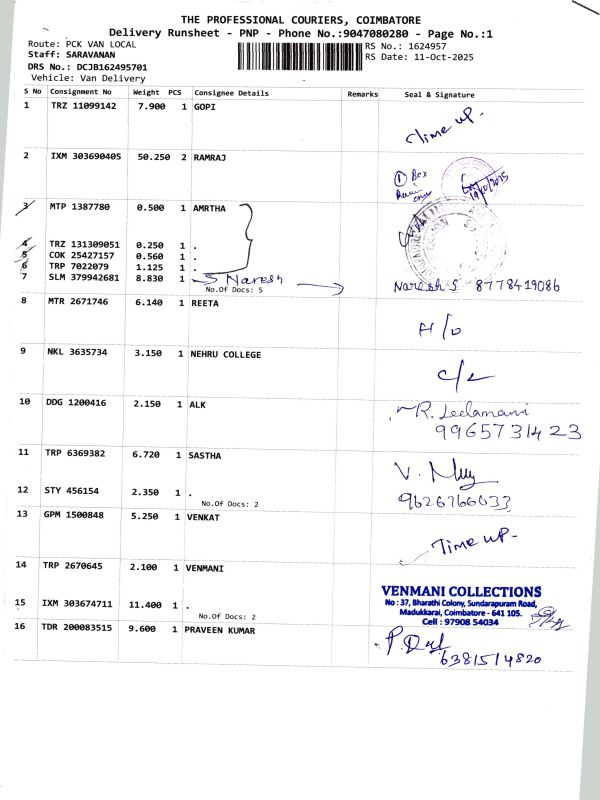 THE PROFESSIONAL COURIERS, COIMBATORE
Delivery Runsheet - PNP - Phone No.:9047080280 - Page No.:1
Route: PCK VAN LOCAL
RS No.: 1624957
Staff: SARAVANAN
RS Date: 11-Oct-2025
DRS No.: DCJB162495701
Vehicle: Van Delivery
S No Consignment No Weight PCS Consignee Details Remarks Seal & Signature
1 TRZ 11099142 7.900 1 GOPI
Time up.
2 IXM 303690405 50.250 2 RAMRAJ
① Box
3 MTP 1387780 0.500 1 AMRTHA
4 TRZ 131309051 0.250 1 .
5 COK 25427157 0.560 1 .
6 TRP 7022079 1.125 1 .
7 SLM 379942681 8.830 1 . S Naresh
No.Of Docs: 5
Naresh S 8778419086
8 MTR 2671746 6.140 1 REETA
H/O
9 NKL 3635734 3.150 1 NEHRU COLLEGE
C/L
10 DDG 1200416 2.150 1 ALK
R. Leelamani
9965731423
11 TRP 6369382 6.720 1 SASTHA
12 STY 456154 2.350 1 .
No.Of Docs: 2
9626766033
13 GPM 1500848 5.250 1 VENKAT
Time up-
14 TRP 2670645 2.100 1 VENMANI
VENMANI COLLECTIONS
No : 37, Bharathi Colony, Sundarapuram Road,
Madukkarai, Coimbatore - 641 105.
Cell : 97908 54034
15 IXM 303674711 11.400 1 .
No.Of Docs: 2
16 TDR 200083515 9.600 1 PRAVEEN KUMAR
6381514820